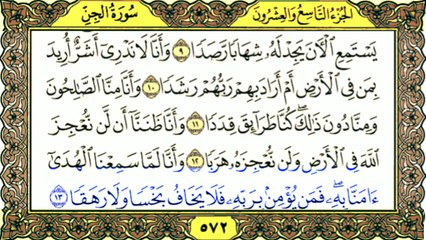 الجزء التاسع والعشرون
سورة الجن
يَسْتَمِعِ ٱلْآنَ يَجِدْ لَهُۥ شِهَابًا رَّصَدًا ٩ وَأَنَّا لَا نَدْرِىٓ أَشَرٌّ أُرِيدَ
بِمَن فِى ٱلْأَرْضِ أَمْ أَرَادَ بِهِمْ رَبُّهُمْ رَشَدًا ١٠ وَأَنَّا مِنَّا ٱلصَّٰلِحُونَ
وَمِنَّا دُونَ ذَٰلِكَ ۖ كُنَّا طَرَآئِقَ قِدَدًا ١١ وَأَنَّا ظَنَنَّآ أَن لَّن نُّعْجِزَ
ٱللَّهَ فِى ٱلْأَرْضِ وَلَن نُّعْجِزَهُۥ هَرَبًا ١٢ وَأَنَّا لَمَّا سَمِعْنَا ٱلْهُدَىٰٓ
ءَامَنَّا بِهِۦ ۖ فَمَن يُؤْمِنۢ بِرَبِّهِۦ فَلَا يَخَافُ بَخْسًا وَلَا رَهَقًا ١٣
٥٧٢